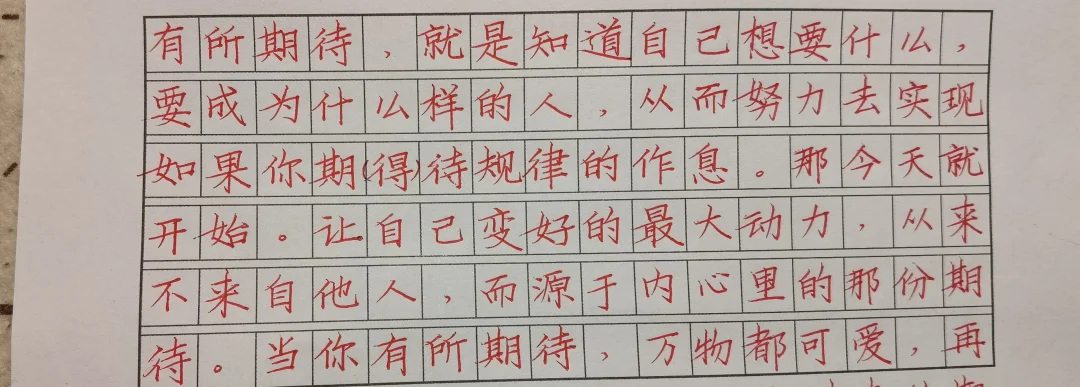 有所期待，就是知道自己想要什么，
要成为什么样的人，从而努力去实现
如果你期(得)待规律的作息。那今天就
开始。让自己变好的最大动力，从来
不来自他人，而源于内心里的那份期
待。当你有所期待，万物都可爱，再